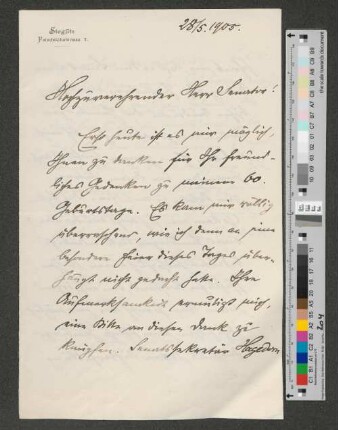 Steglitz
28/5.1905.
Hochzuverehrender Herr Senator!
Erst heute ist es mir möglich,
Ihnen zu danken für Ihr freund-
liches Gedenken zu meinem 60.
Geburtstage. Es kam mir völlig
überraschend, wie ich denn an eine
besondere Feier dieses Tages über-
haupt nicht gedacht hatte. Ihre
Aufmerksamkeit ermutigt mich,
eine Bitte an diesen Dank zu
knüpfen. Senatssekretär Hagedorn